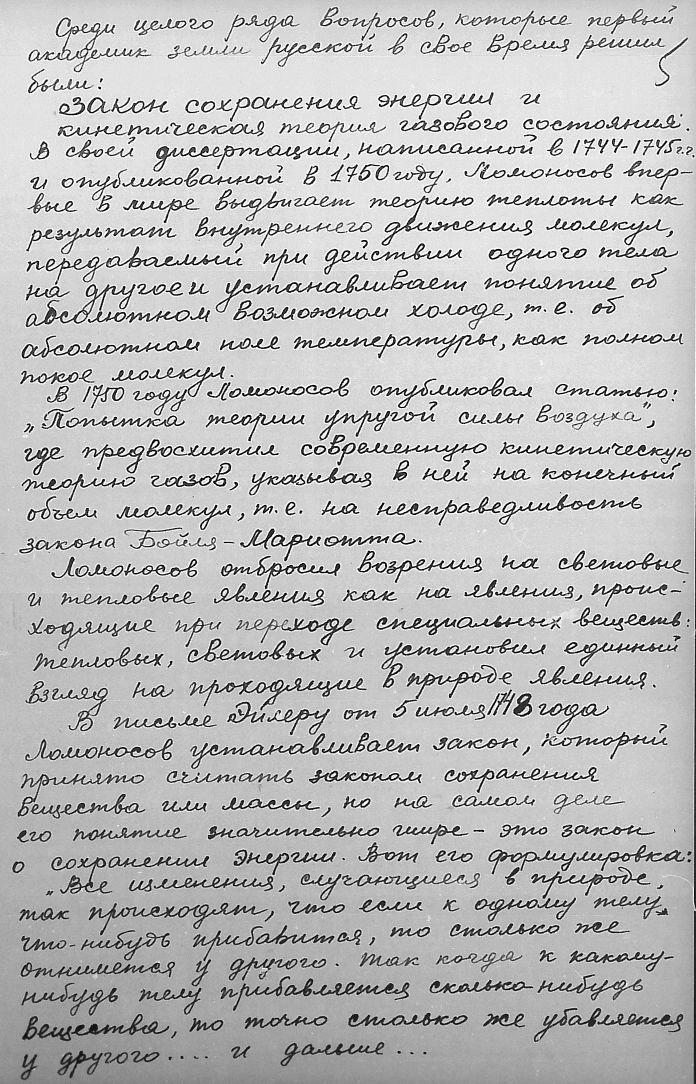 Среди целого ряда вопросов, которые первый
академик земли русской в свое время решил
были:
закон сохранения энергии и
кинетическая теория газового состояния.
В своей диссертации, написанной в 1744-1745 г.г.
и опубликованной в 1750 году, Ломоносов впер-
вые в мире выдвигает теорию теплоты как
результат внутреннего движения молекул,
передаваемый при действии одного тела
на другое и устанавливает понятие об
абсолютном возможном холоде, т.е. об
абсолютном поле температуры, как полном
покое молекул.
В 1750 году Ломоносов опубликовал статью:
„Попытка теории упругой силы воздуха",
где предвосхитил современную кинетическую
теорию газов, указывая в ней на конечный
объем молекул, т.е. на несправедливость
закона Бойля-Мариотта.
Ломоносов отбросил возрения на световые
и тепловые явления как на явления, проис-
ходящие при переходе специальных веществ:
тепловых, световых и установил единный
взгляд на проходящие в природе явления.
В письме Эйлеру от 5 июля 1748 года
Ломоносов устанавливает закон, который
принято считать законом сохранения
вещества или массы, но на самом деле
его понятие значительно шире - это закон
о сохранении энергии. Вот его формулировка:
„Все изменения, случающиеся в природе,
так происходят, что если к одному телу
что-нибудь прибавится, то столько же
отнимется у другого. Так когда к какому-
нибудь телу прибавляется сколько-нибудь
вещества, то точно столько же убавляется
у другого.... и дальше...